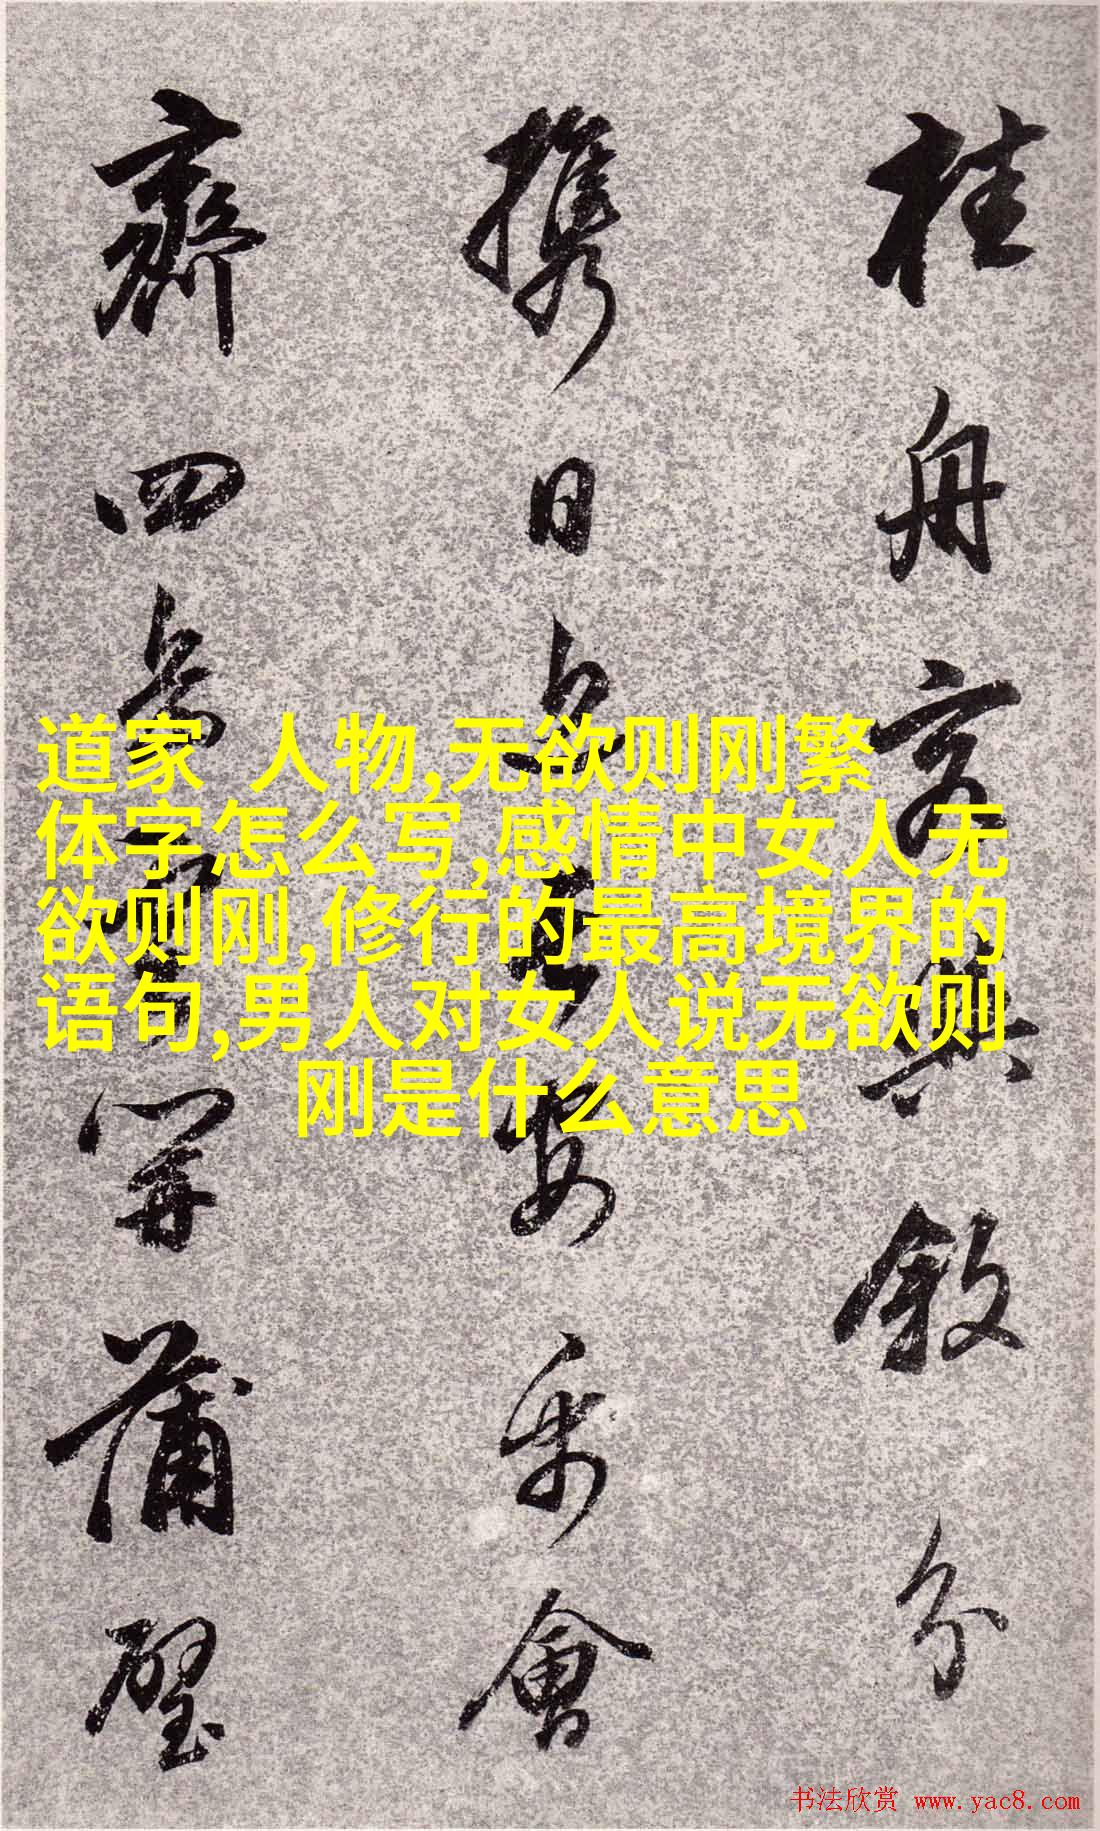 道家 人物,无欲则刚繁
体字怎么写,感情中女人无
欲则刚,修行的最高境界的
语句,男人对女人说无欲则
刚是什么意思
桂舟與敘分
攜日會
齊四開蒲璧
书法欣赏 www.yac8.com